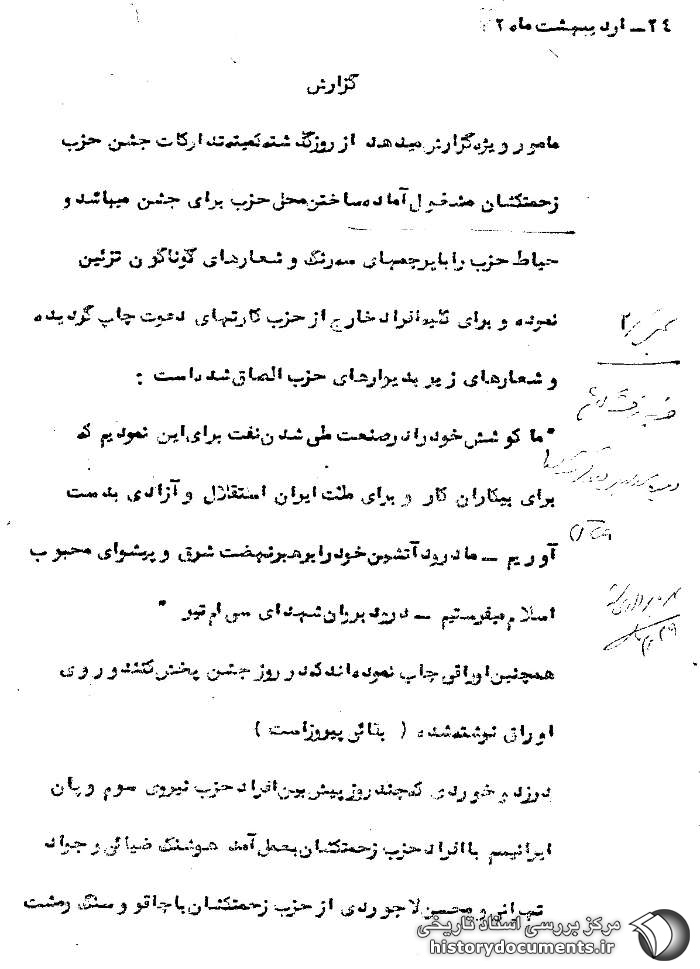 ۲٤ـ اردیبهشت ماه ۳۲
گزارش
مامور ویژه گزارش میدهد از روز گذشته کمیته تدارکات جشن حزب
زحمتکشان مشغول آماده ساختن محل حزب برای جشن میباشد و
حیاط حزب را با پرچمهای سه رنگ و شعارهای گوناگون تزئین
نموده و برای کلیه افراد خارج از حزب کارتهای دعوت چاپ گردیده
و شعارهای زیر بدیوارهای حزب الصاق شده است :
"ما کوشش خود را در صنعت ملی شدن نفت برای این نمودیم که
برای بیکاران کار و برای ملت ایران استقلال و آزادی بدست
آوریم ـ ما درود آتشین خود را برهبر نهضت شرق و پیشوای محبوب
اسلام میفرستیم ـ درود بروان شهدای سی ام تیر "
همچنین اوراقی چاپ نموده اند که در روز جشن پخش کنند و روی
اوراق نوشته شده ( بقائی پیروز است )
در زد و خوردی که چند روز پیش بین افراد حزب نیروی سوم و پان
ایرانیسم با افراد حزب زحمتکشان بعمل آمد هوشنگ ضیائی و جواد
تهرانی و محسن لاجوردی از حزب زحمتکشان با چاقو و سنگ و مشت
مرکز بررسی اسناد تاریخی
historydocuments.ir